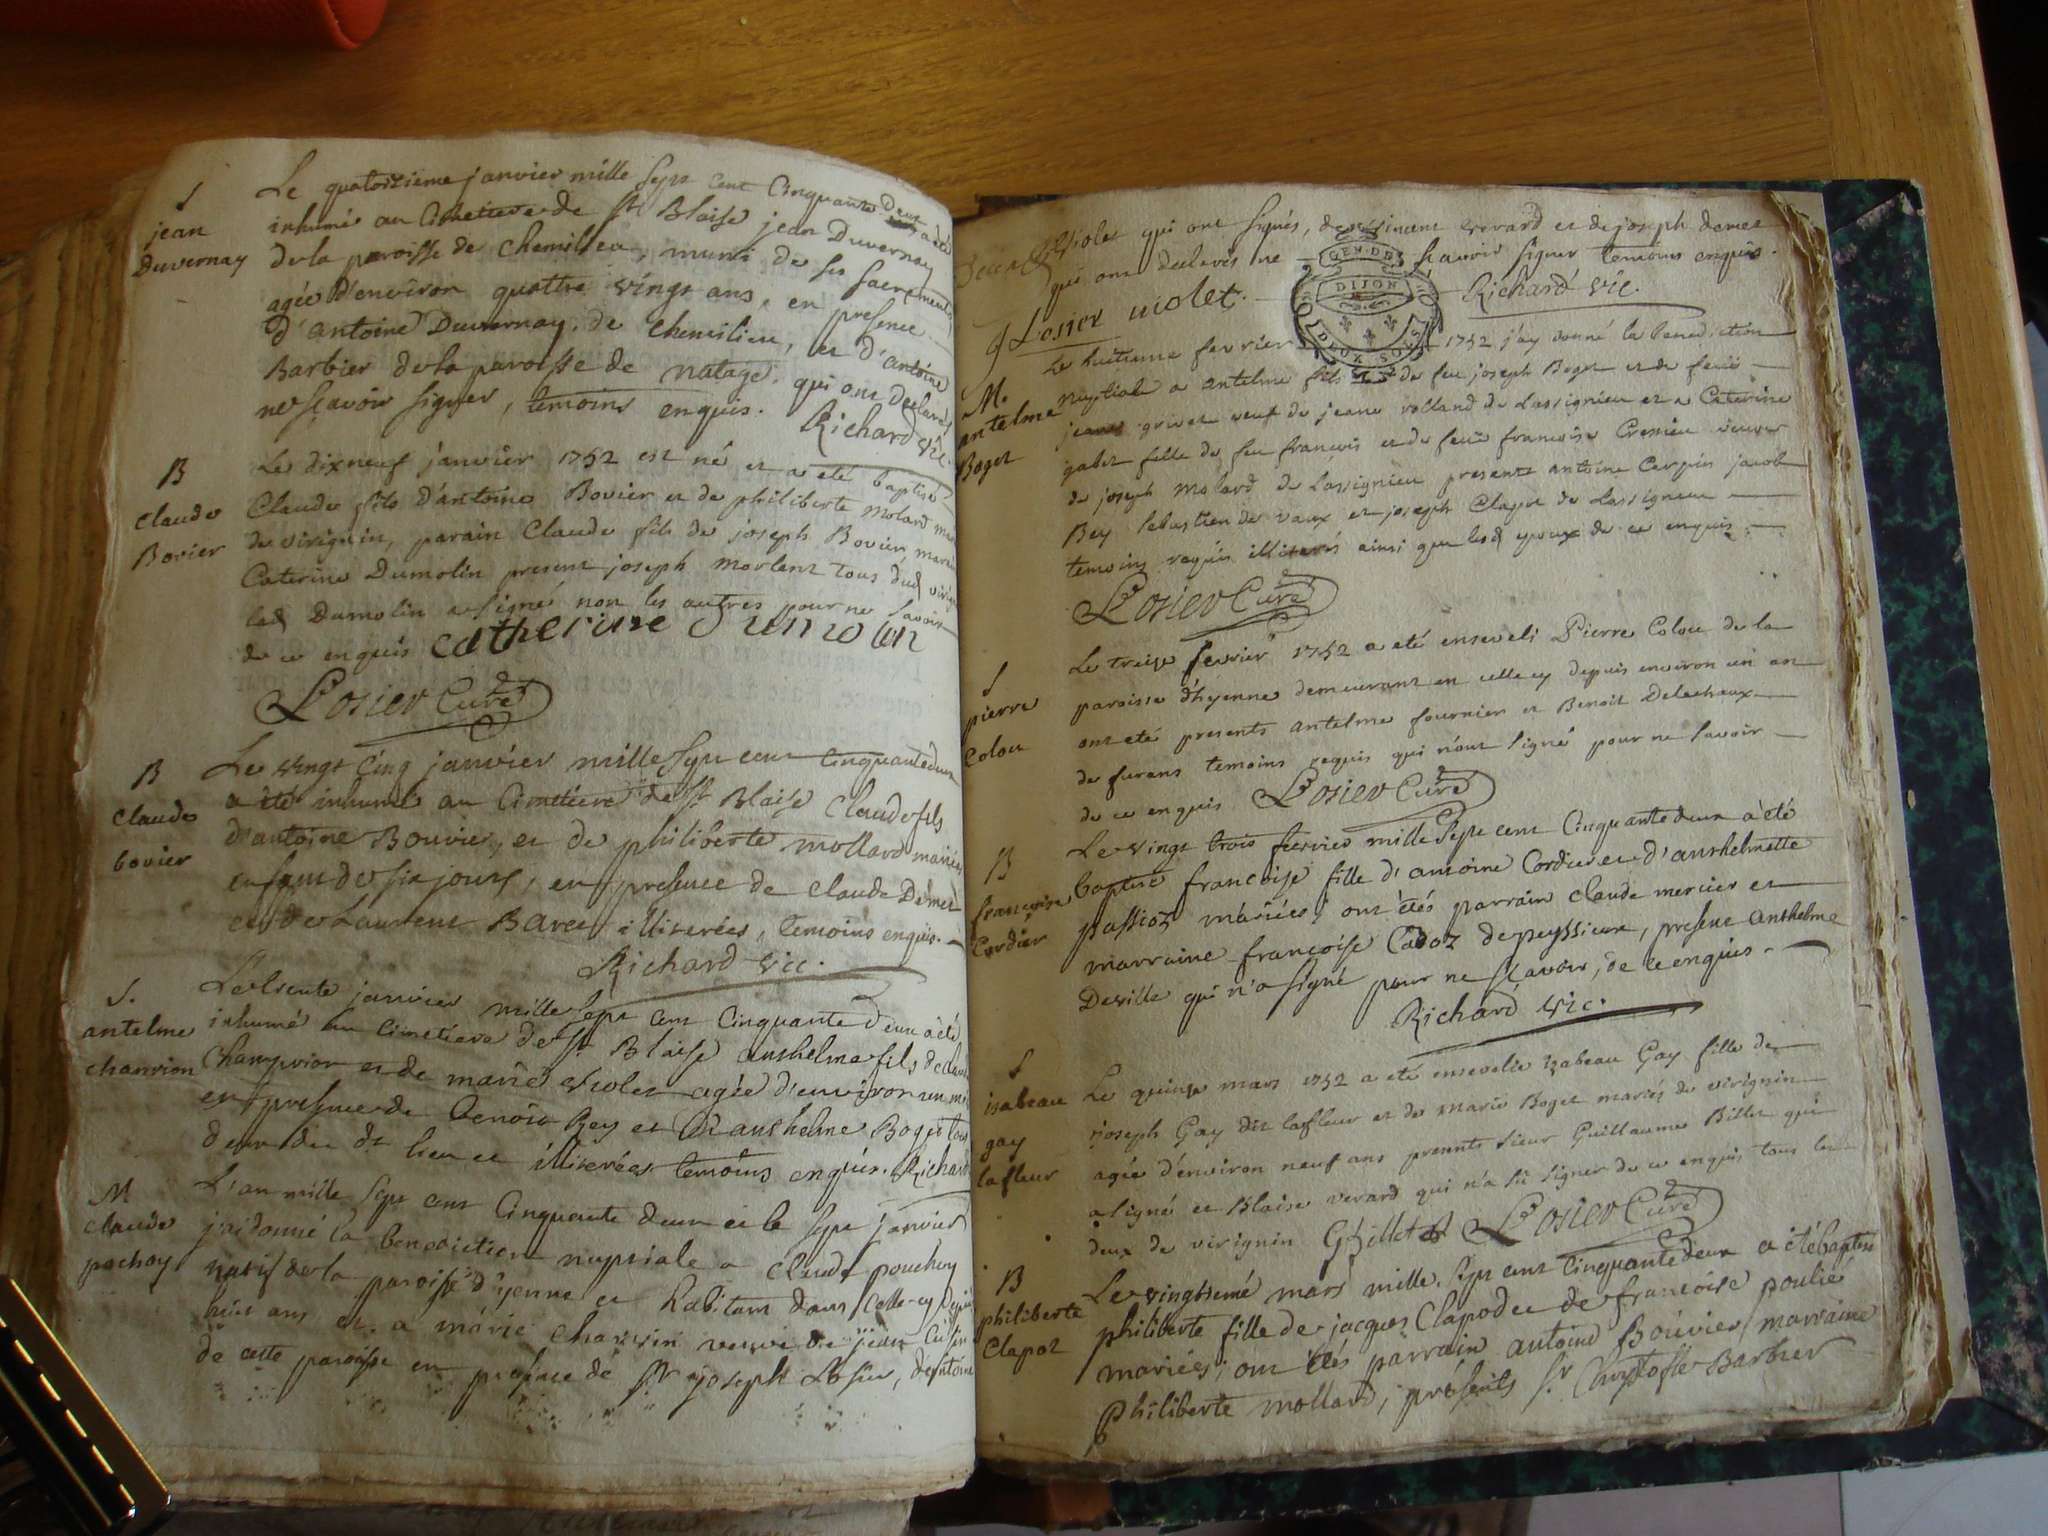 S
jean
Duvernay
Le quatorzième janvier mille sept cent Cinquante Deux a été
inhumé au Cimetiere de St Blaise jean Duvernay
de la paroisse de Chemillieu, muni de ses sacrements
agée d'environ quattre vingt ans, en presence
d'antoine Duvernay de Chemilieu, et d'antoine
Barbier de la paroisse de natage, qui ont declarés
ne sçavoir signer, temoins enquis. Richard vic.
B
Claude
Bovier
Le dixneuf janvier 1752 est né et a eté baptisé
Claude fils d'antoine Bovier et de philiberte Molard
de virignin, parain Claude fils de joseph Bovier
Caterine Dumolin present joseph Morlent tous dud
lad Dumolin a signé non les autres pour ne savoir
de ce enquis Catherine Dumolin
Losier Curé
B
Claude
bovier
Le vingt cinq janvier mille sept cent Cinquante deux
a été inhumé au Cimetiere de St Blaise Claude fils
d'antoine Bouvier, et de philiberte mollard mariés
enfant de six jours, en presence de Claude Demet
et de Laurent Baret illiterées, temoins enquis.
Richard vic.
S.
antelme
chanvion
Le trente janvier mille sept cent Cinquante Deux a été
inhumé au Cimetiere de St Blaise anthelme fils de
et de marie violet agée d'environ un
en presence de Benoit Rey et d'anthelme Boget tous
deux du dt lieu et illiterées temoins enquis. Richard
M
claude
pochoy
L'an mille sept cent Cinquante deux et le sept janvier
j'ai donné la benediction nuptiale a Claude pouchoy
natif de la paroisse d'yenne et habitant dans celle-cy depuis
huit ans et a marie charvin veuve de jean
de cette paroisse en presence de Sr joseph Losier, d'antoine
violet qui ont signés, de vincent verard et de joseph demet
qui ont declarés ne sçavoir signer temoins enquis.
J Losier violet. Richard vic.
GEN. DE
DIJON
DEUX SOLS
M.
antelme
Boget
Le huitieme fevrier 1752 j'ay donné la benediction
nuptiale a antelme fils de feu joseph Boget et de feüe
jeanne grivet veuf de jeane rolland de Lassignieu et a Caterine
gabet fille de feu francois et de feüe francoise Cressieu veuve
de joseph Molard de Lassignieu presents antoine Carpin jacob
Bey sebastien de vaux et joseph Clapot de Lassignieu
temoins requis illiterés ainsi que lesd epoux de ce enquis
Losier Curé
S
pierre
Colou
Le treise fevrier 1752 a eté enseveli Pierre Colou de la
paroisse d'hyenne demeurant en celle cy depuis environ un an
ont eté presents antelme fournier et Benoit Delechaux
de furans temoins requis qui n'ont signé pour ne savoir
de ce enquis Losier Curé
B
francoise
Cordier
Le vingt trois fevrier mille sept cent Cinquante deux a été
baptisé francoise fille d'antoine Cordier et d'anthelmette
passioz mariées, ont étés parrain claude mercier et
marraine francoise Cadoz de peyssieux, present anthelme
Deville qui n'a signé pour ne sçavoir, de ce enquis.
Richard vic.
S
isabeau
gay
lafleur
Le quinse mars 1752 a eté ensevelie isabeau Gay fille de
joseph Gay dit lafleur et de Marie Boget mariés de virignin
agée d'environ neuf ans presents sieur Guillaume Billet qui
a signé et Blaise verard qui n'a sû signer de ce enquis tous les
deux de virignin GBillet Losier Curé
B
philiberte
Clapot
Le vingtiemé mars mille sept cent Cinquante deux a été baptisé
philiberte fille de jacques Clapod et de francoise poulié
mariées; ont étés parrain antoine Bouvier marraine
Philiberte mollard, présents Sr Chrystofle Barbier